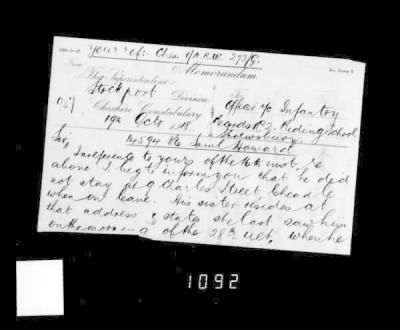 your ref:- Ches. 1/A.R.W. 293/9.
Memorandum.
From The Superintendent
To
Stockport Division,
Officer i/c Infantry
Cheshire Constabulary
Records No 2. Riding School
19th Octr 1918
Shrewsbury.
Sir,
14594 Pte Saml Howard
In reference to yours of the inst re
above I beg to inform you that he did
not stay at 9 Charles Street Cheadle
when on leave. His sister resides at
that address & states she last saw him
on the morning of the 28th ult, when he
1092